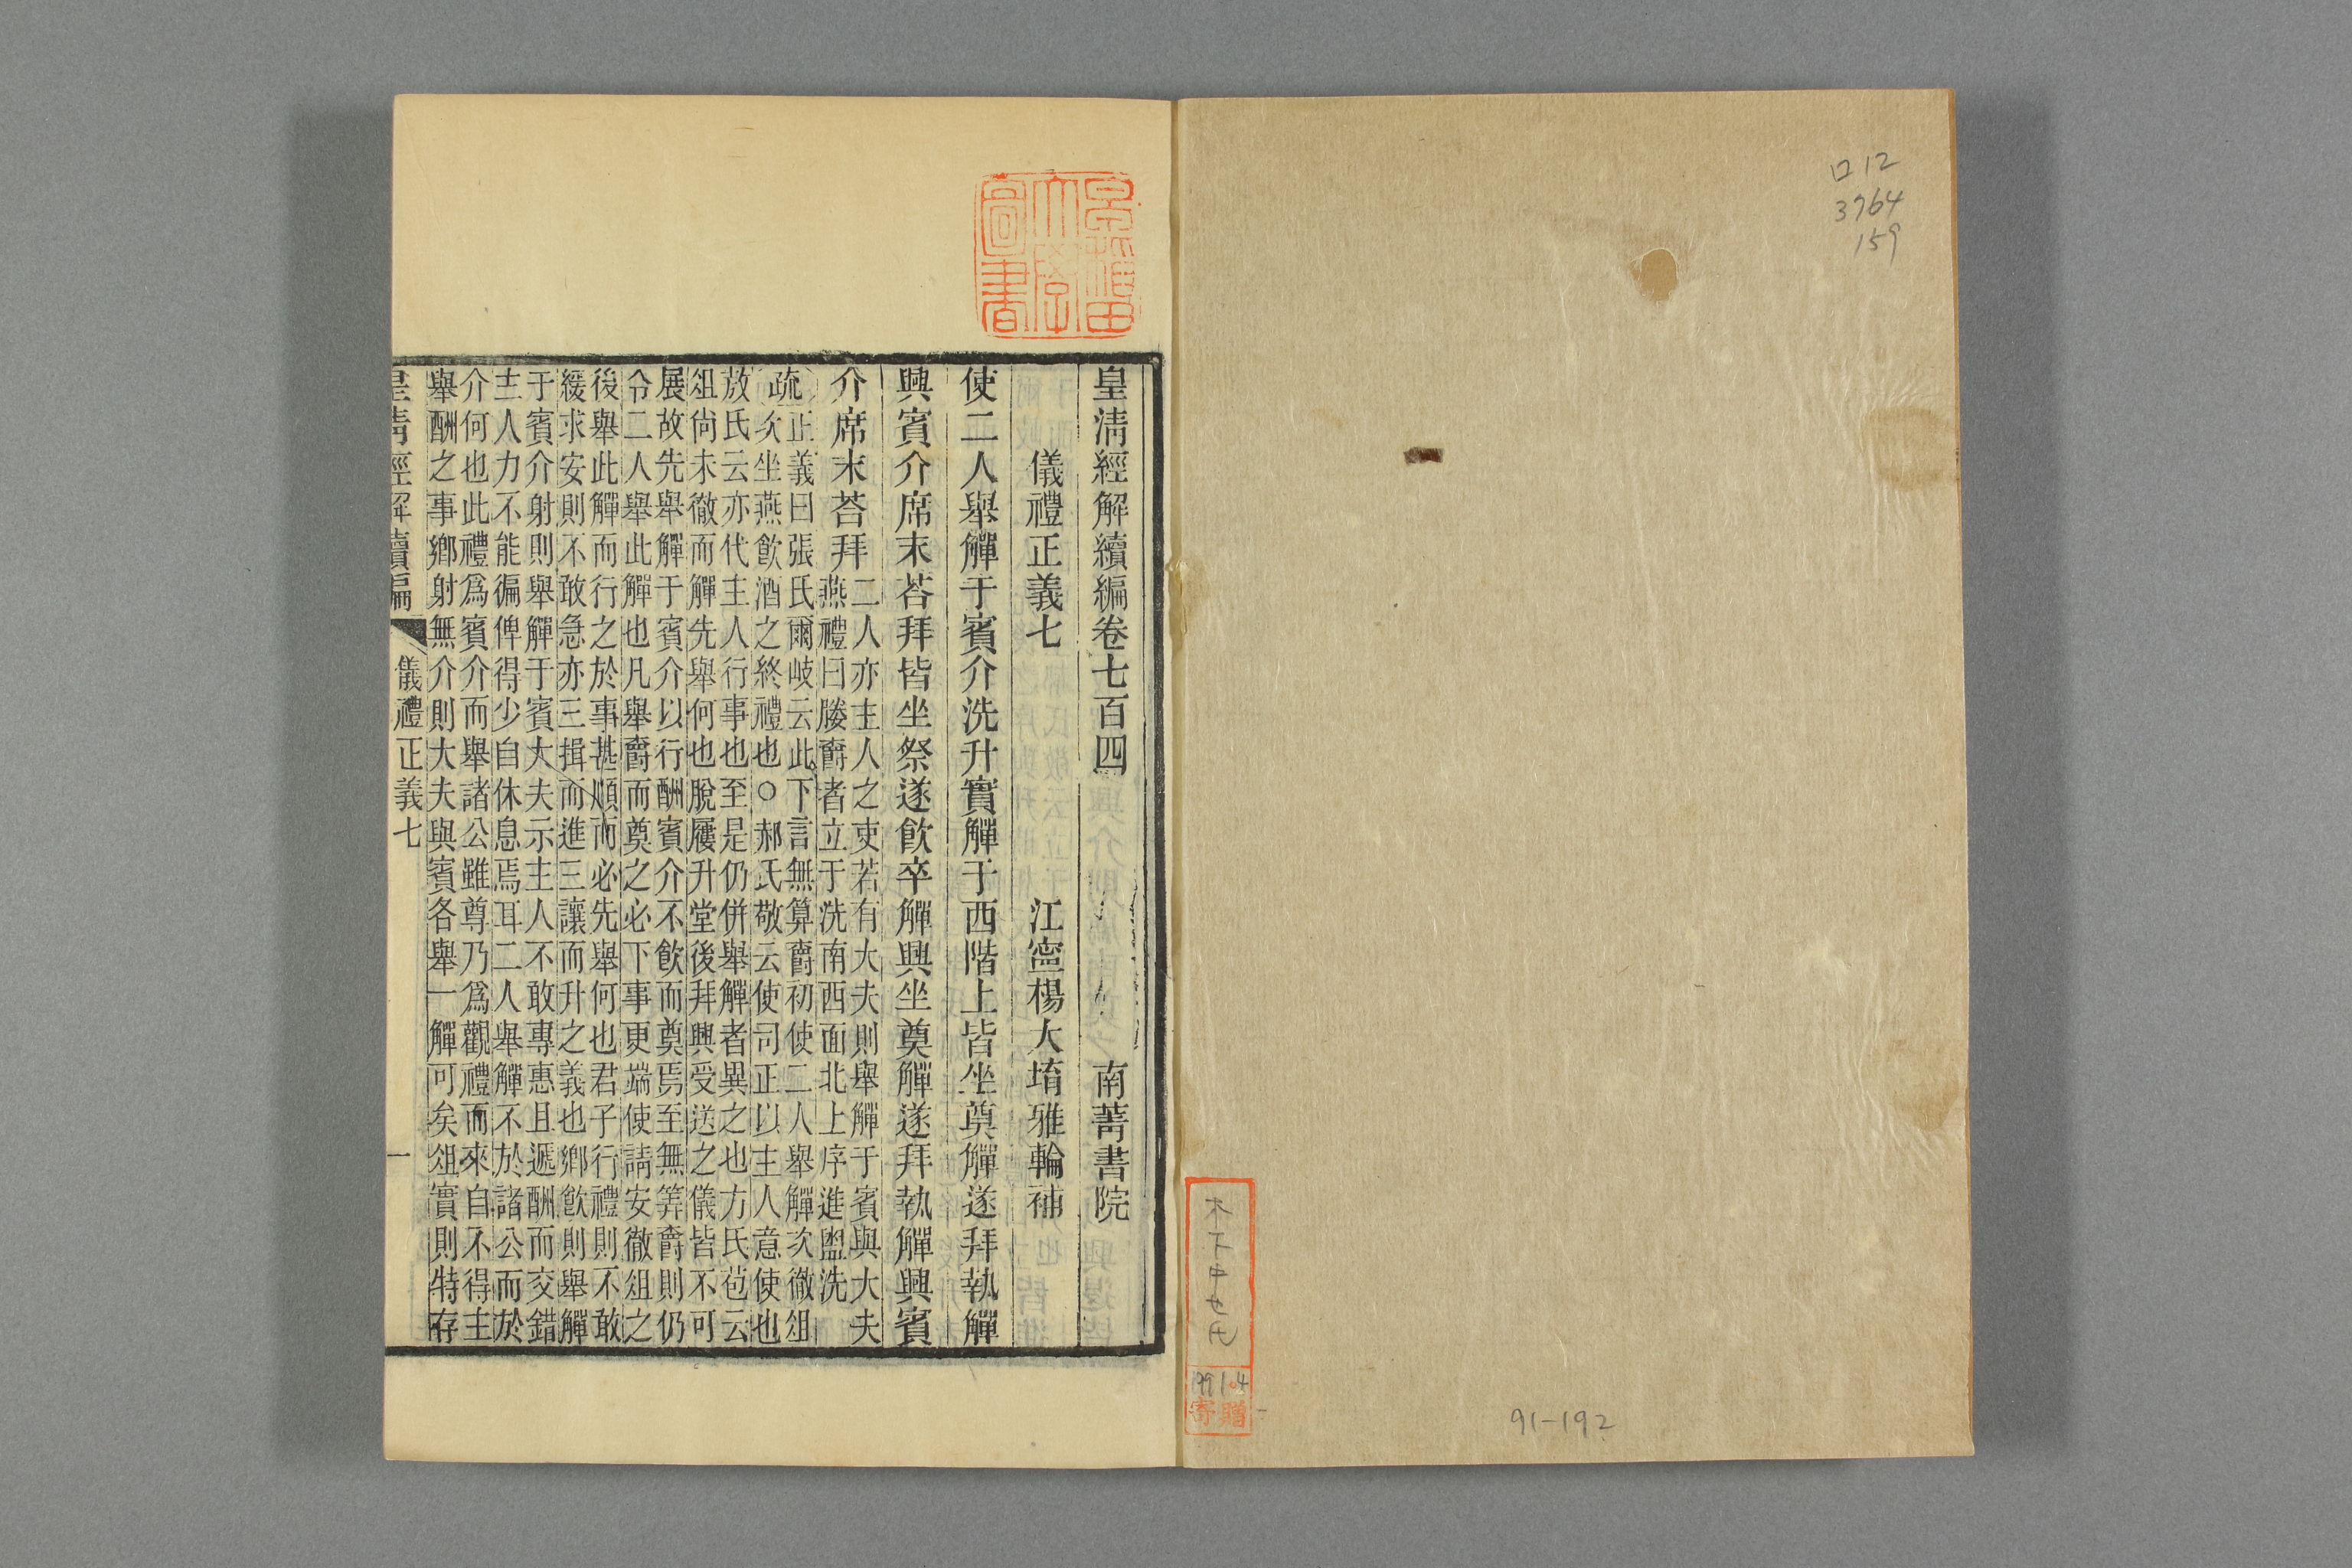 口12
3764
159
木下中也氏
1991.4
寄贈
91-192
早稲田
大學
圖書
皇清經解續編卷七百四 南菁書院
儀禮正義七 江寧楊大堉雅輪補
使二人舉觶于賓介洗升實觶于西階上皆坐奠觶遂拜執觶
興賓介席末荅拜皆坐祭遂飲卒觶興坐奠觶遂拜執觶興賓
介席末荅拜
二人亦主人之吏若有大夫則舉觶于賓與大夫
燕禮曰媵爵者立于洗南西面北上序進盥洗
疏
正義曰張氏爾岐云此下言無算爵初使二人舉觶次徹俎
次坐燕飲酒之終禮也○郝氏敬云使司正以主人意使也
放氏云亦代主人行事也至是仍併舉觶者異之也方氏苞云
俎尙未徹而觶先舉何也脫屨升堂後拜興受送之儀皆不可
展故先舉觶于賓介以行酬賓介不飲而奠焉至無筭爵則仍
令二人舉此觶也凡舉爵而奠之必下事更端使請安徹俎之
後舉此觶而行之於事甚順而必先舉何也君子行禮則不敢
緩求安則不敢急亦三揖而進三讓而升之義也鄉飲則舉觶
于賓介射則舉觶于賓大夫示主人不敢專惠且遞酬而交錯
主人力不能徧俾得少自休息焉耳二人舉觶不於諸公而於
介何也此禮爲賓介而舉諸公雖尊乃爲觀禮而來自不得主
舉酬之事鄉射無介則大夫與賓各舉一觶可矣俎實則特存
皇清經解續編 儀禮正義七 一